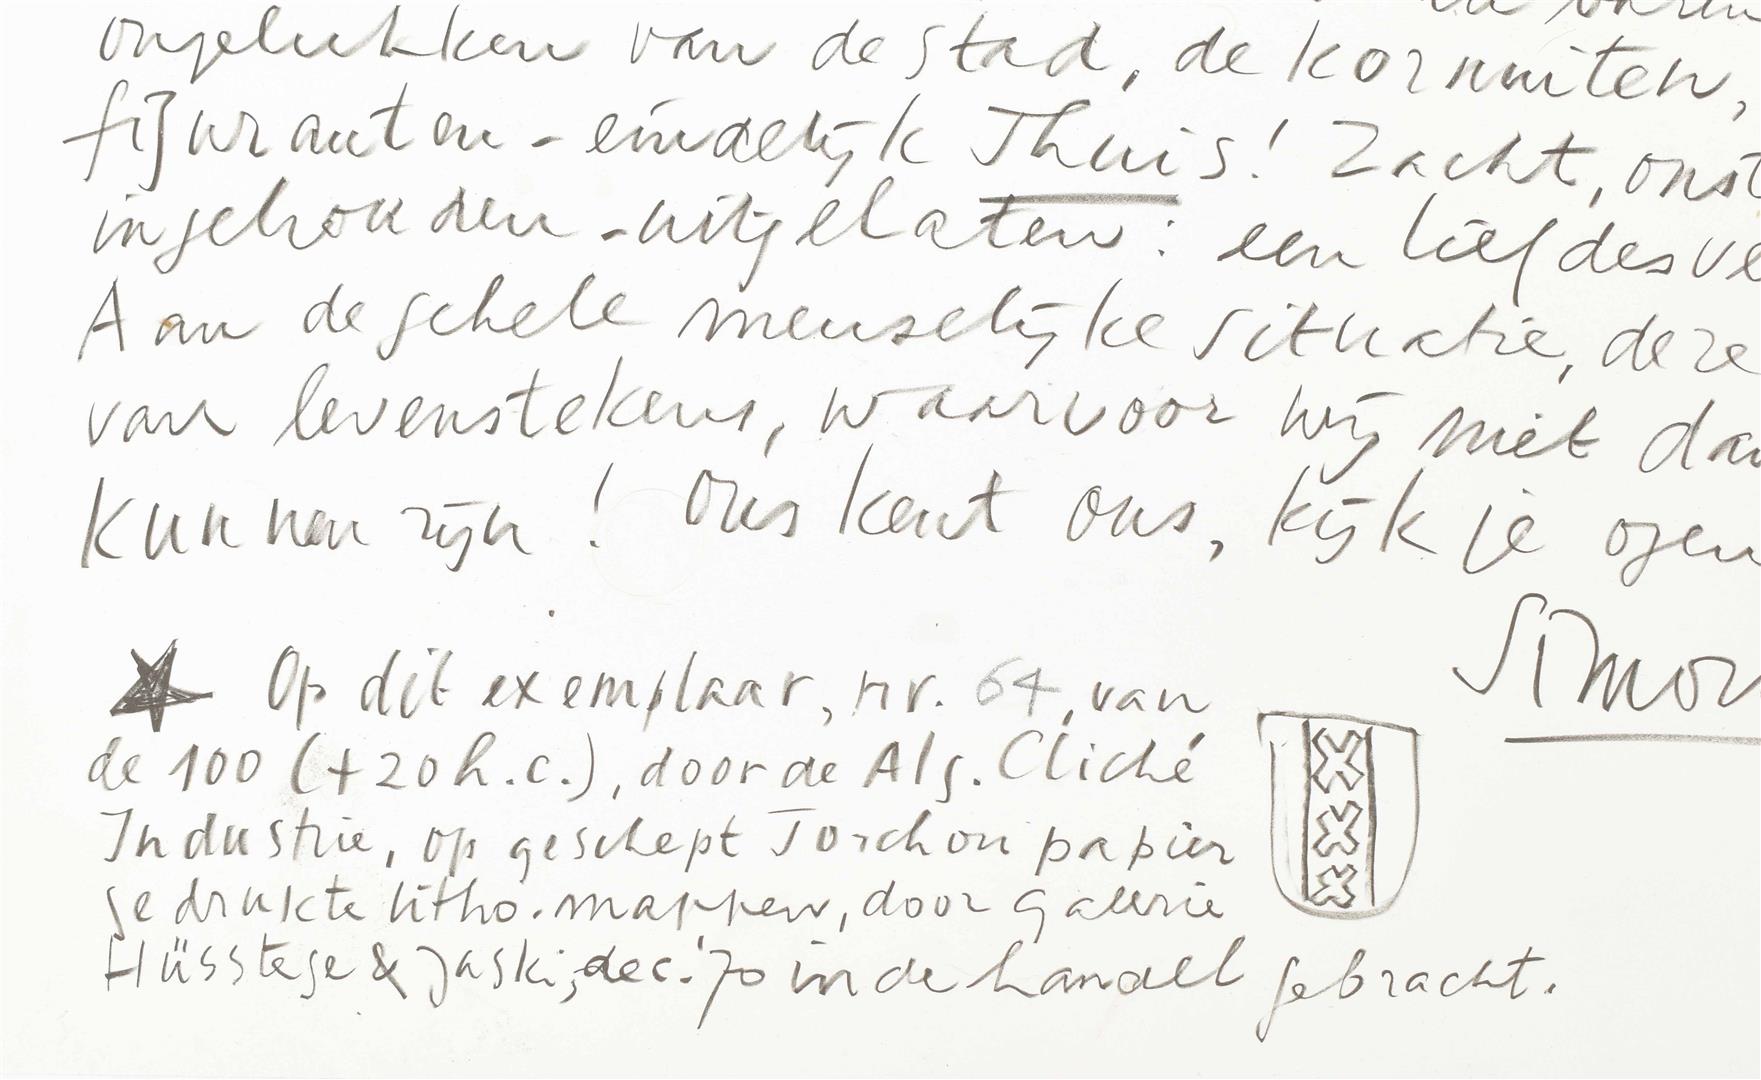 ongelukken van de stad, de kornuiten,
figuranten - eindelijk Thuis! Zacht, onst
ingehouden - uitgelaten: een liefdesve
Aan de gehele menselijke situatie, deze
van levenstekens, waarvoor wij niet da
kunnen zijn! Ons kent ons, kijk je ogen
Simon
Op dit exemplaar, nr. 64, van
de 100 (+20 h.c.), door de Alg. Cliché
Industrie, op geschept Torchon papier
gedrukte litho. mappen, door Galerie
Hüsstege & Jaski, dec. '70 in de handel gebracht.